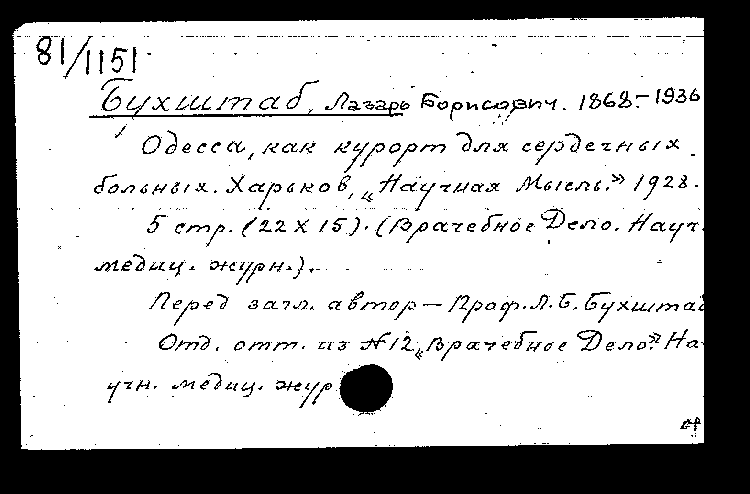 81/1151
Бухштаб, Лазарь Борисович. 1868-1936
Одесса, как курорт для сердечных
больных. Харьков, „Научная Мысль.” 1928.
5 стр. (22 x 15). (Врачебное Дело. Науч.
медиц. журн.).
Перед загл. автор — Проф. Л. Б. Бухштаб
Отд. отт. из № 12 „Врачебное Дело”. На-
учн. медиц. жур